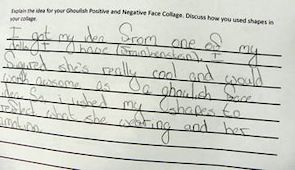 Explain the idea for your Ghoulish Positive and Negative Face Collage. Discuss how you used shapes in
your collage.
I got my idea from one of my
dolls I have (Frankenstein). I
figured she's really cool and would
work awsome as a ghoulish face
idea. So, I used my shapes to
what she and her